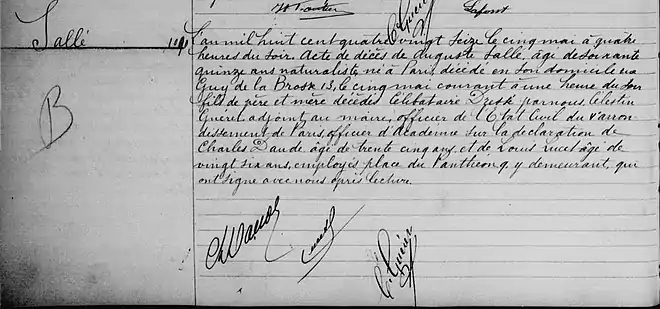 Lafont
Sallé
L'an mil huit cent quatre vingt seize le cinq mai à quatre
heures du soir. Acte de décès de Auguste Sallé, âgé de soixante
quinze ans naturaliste, né à Paris, décédé en son domicile rue
Guy de la Brosse 13, le cinq mai courant à une heure du soir
fils de père et mère décédés Célibataire Dressé par nous, Celestin
Guéret adjoint au maire, officier de l'Etat Civil du V arron
dissement de Paris, officier d'Académie sur la déclaration de
Charles Daude âgé de trente cinq ans, et de Louis Lucet âgé de
vingt six ans, employés place du Panthéon 9, y demeurant, qui
ont signé avec nous après lecture.
B